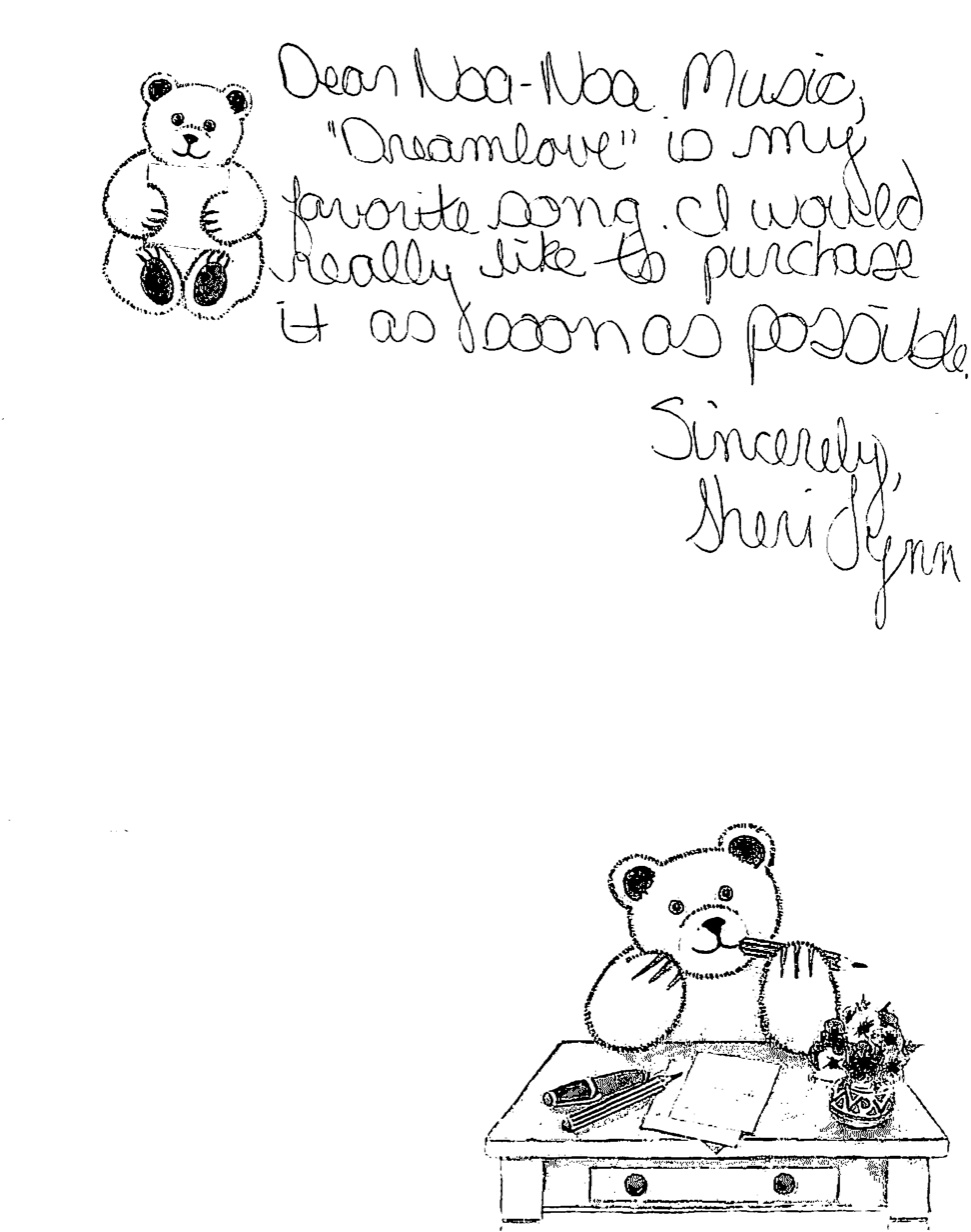 Dear Noa-Noa Music,
"Dreamlove" is my
favorite song. I would
really like to purchase
it as soon as possible.
Sincerely,
Sheri Lynn